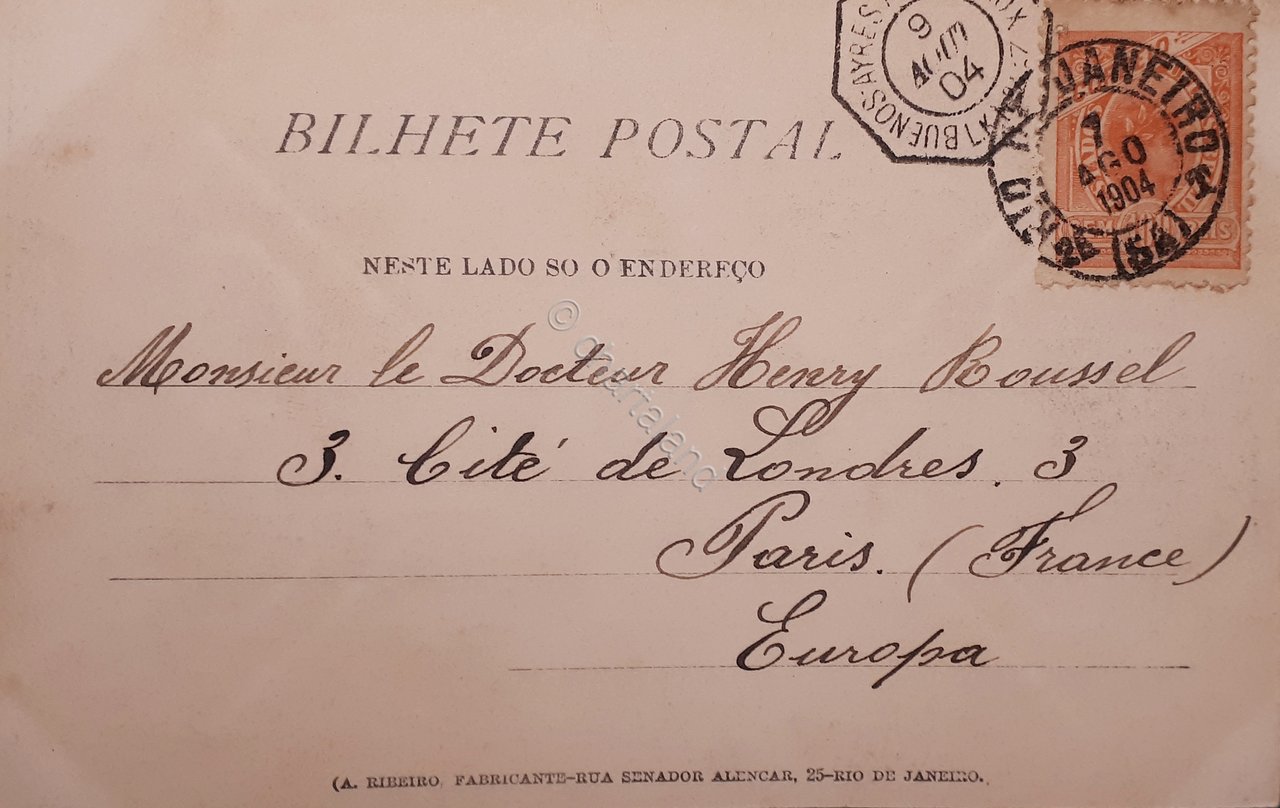 BILHETE POSTAL
BUENOS-AYRES
9
AOUT
04
RIO JANEIRO
7
AGO
1904
NESTE LADO SO O ENDEREÇO
Monsieur le Docteur Henry Roussel
3. Cité de Londres. 3
Paris. (France)
Europa
© chartaland
(A. RIBEIRO, FABRICANTE-RUA SENADOR ALENCAR, 25-RIO DE JANEIRO.